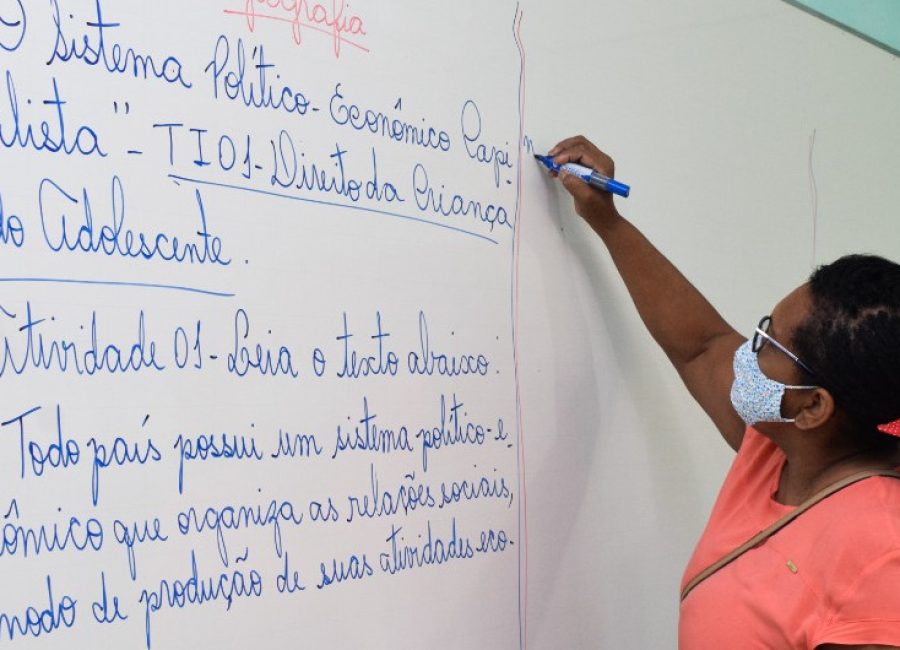 Geografia
O Sistema Político-Econômico Capi-
alista" - TI01-Direito da Criança
do Adolescente.
Atividade 01-Leia o texto abaixo:
Todo país possui um sistema político-e-
ômico que organiza as relações sociais,
modo de produção de suas atividades eco-
n